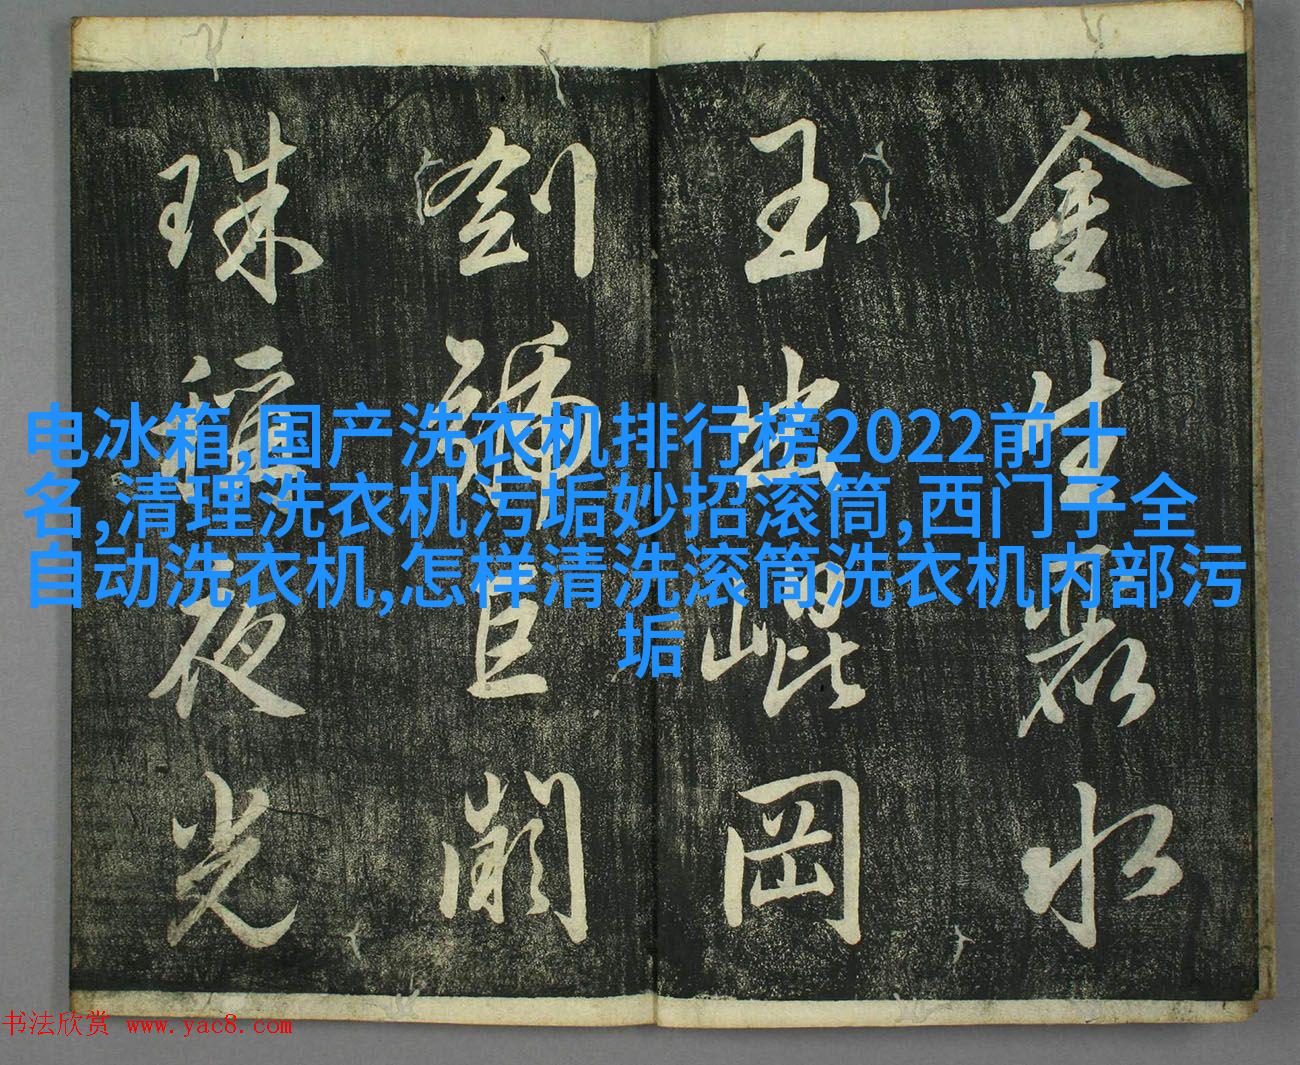 金生麗水
玉出崐岡
劍號巨闕
珠稱夜光
电冰箱,国产洗衣机排行榜2022前十
名,清理洗衣机污垢妙招滚筒,西门子全
自动洗衣机,怎样清洗滚筒洗衣机内部污
垢
书法欣赏 www.yac8.com